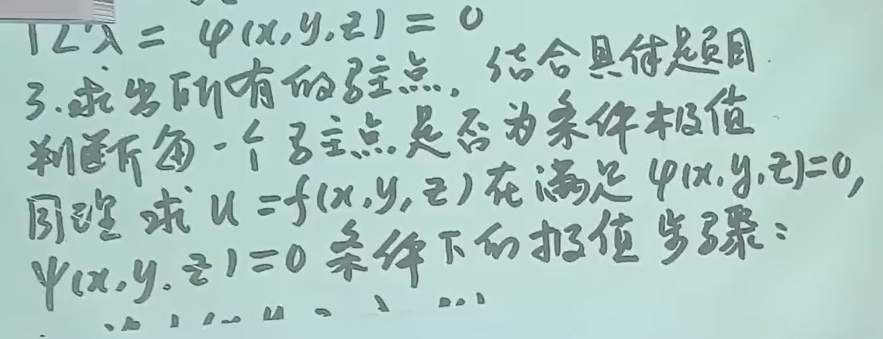 L'λ = φ(x,y,z) = 0
3.求出所有的驻点,结合具体题目
判断每一个驻点是否为条件极值
同理求 u=f(x,y,z)在满足 φ(x,y,z)=0,
ψ(x,y,z)=0 条件下的极值步骤: